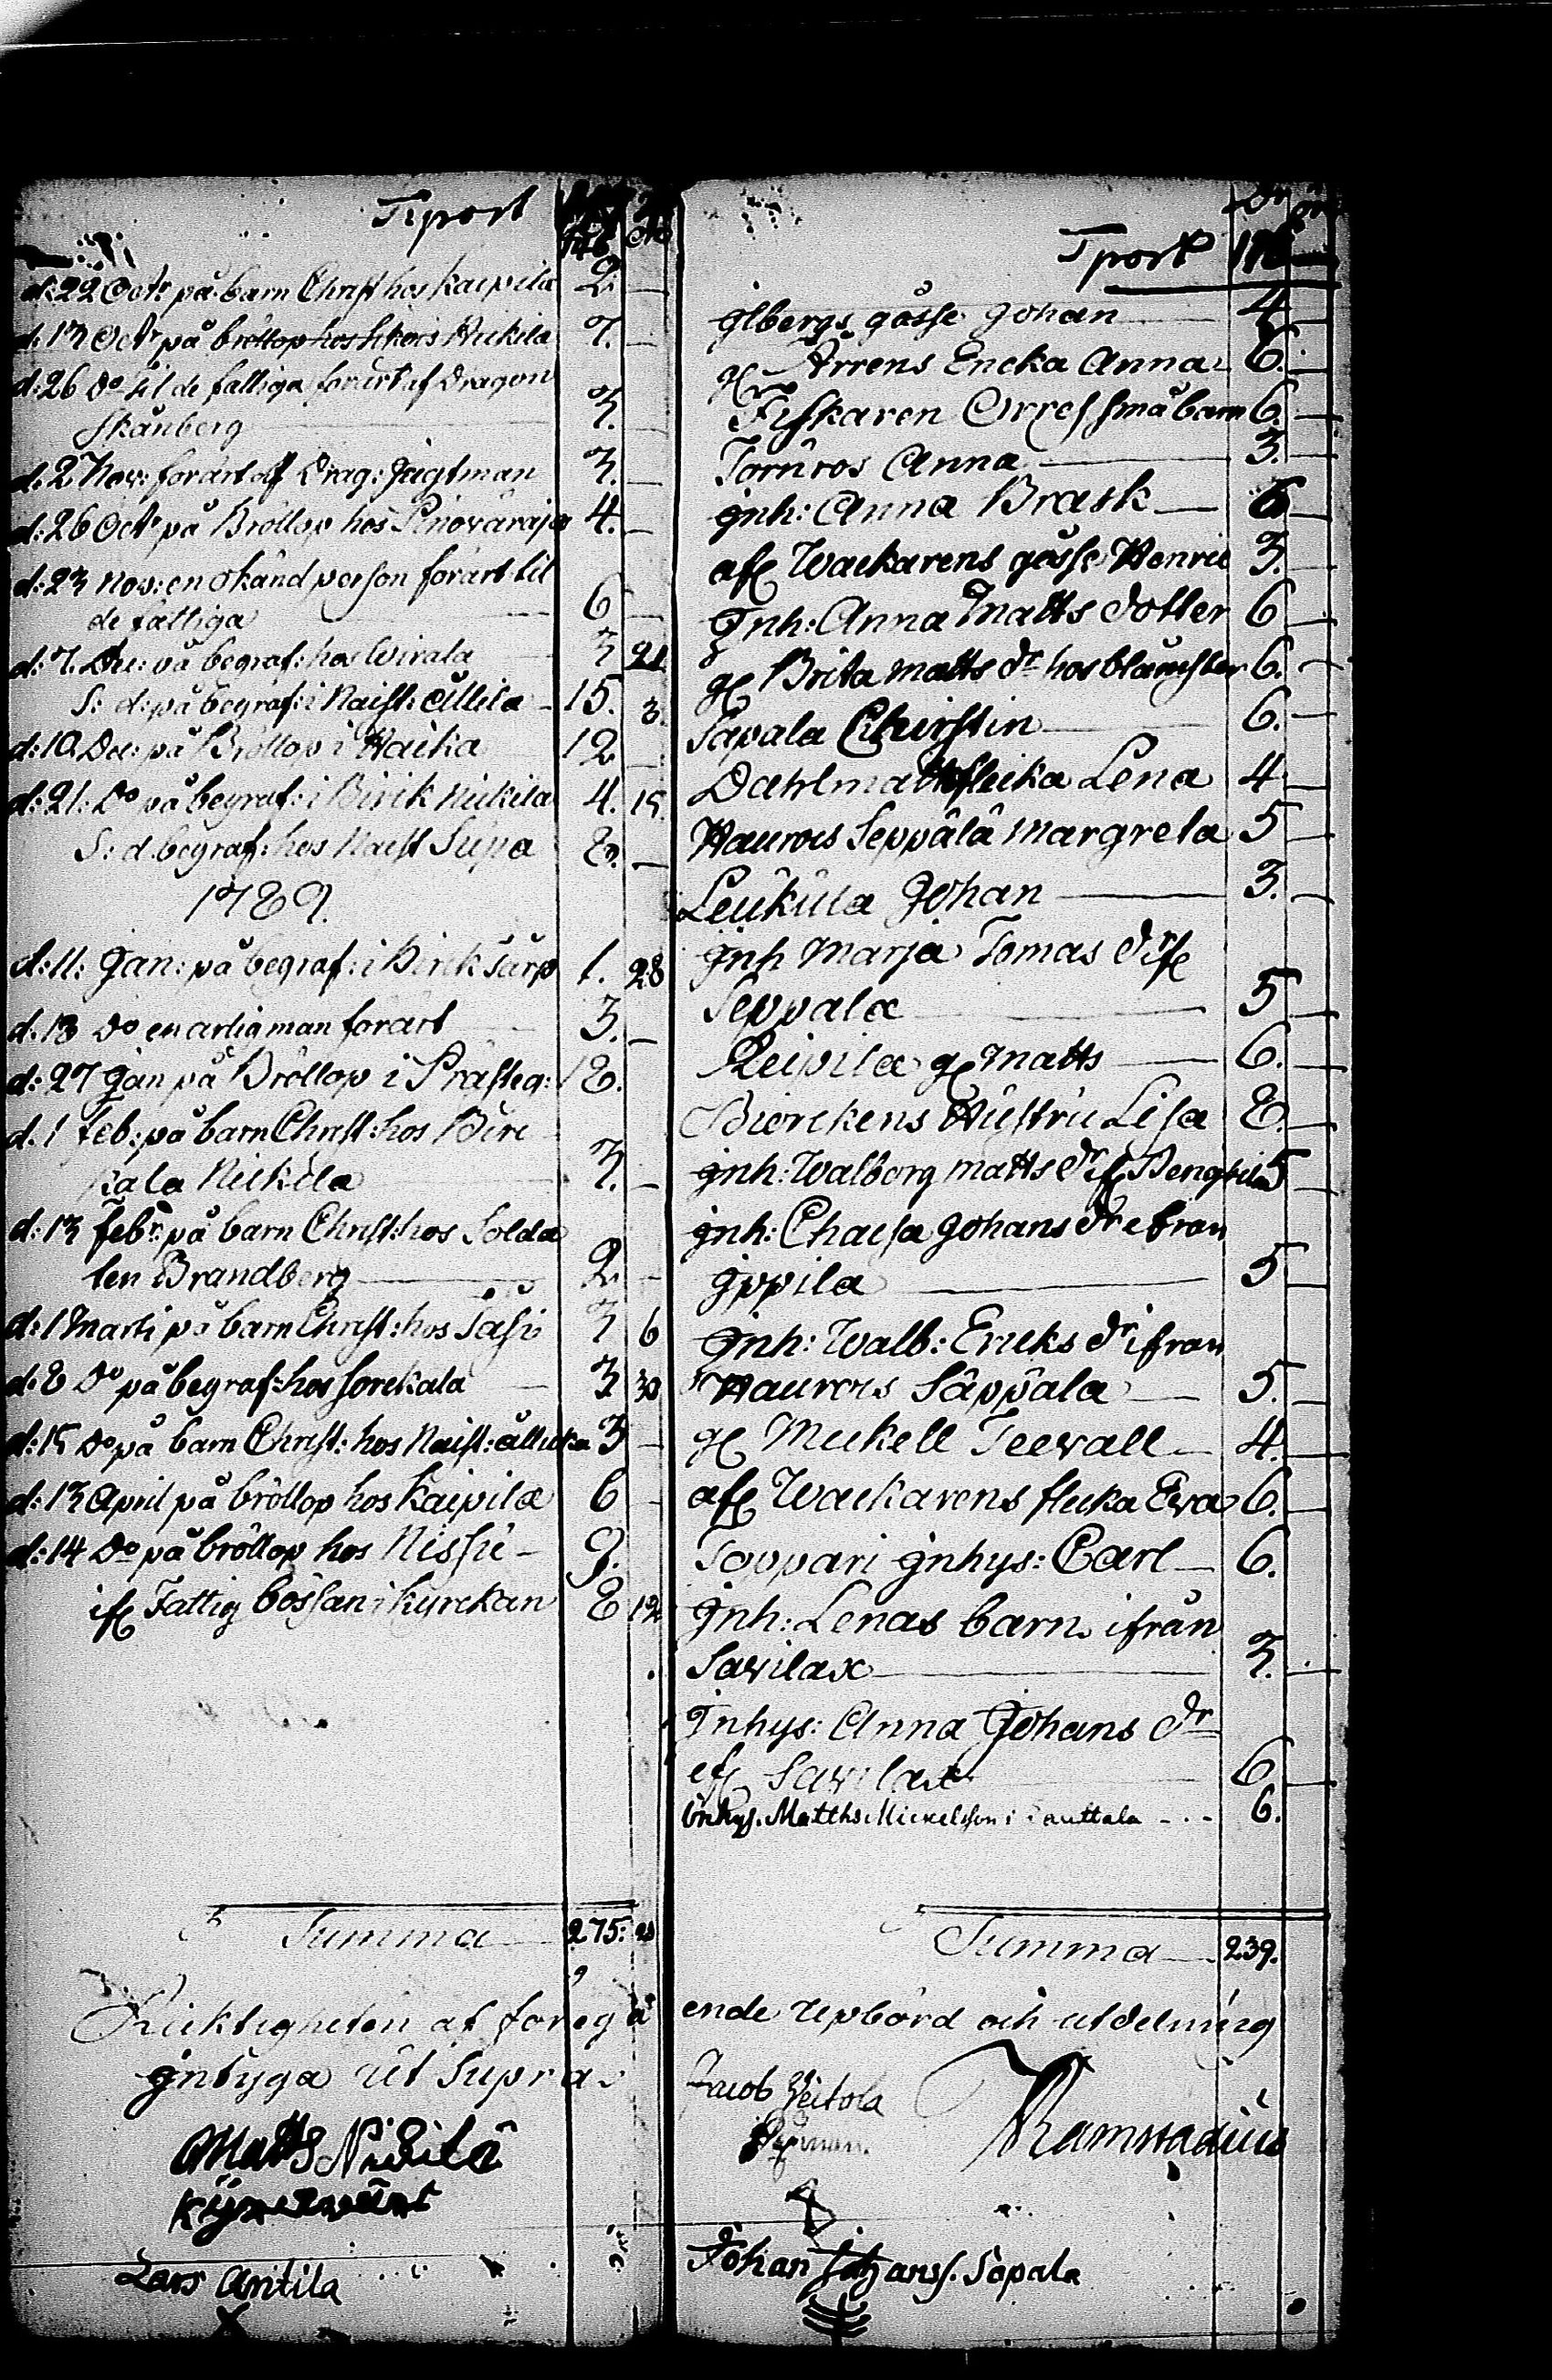 Tiport
146
d: 22 Octr på barn Christ hos Kaipila 2. —
d. 13 Octr på bröllop hos Sikois Nickila 7. —
d: 26 Do til de fattiga förärt af Dragon
Skånberg 3. —
d. 2 Nov: förärt af Drag: Jägtman 3. —
d: 26 Octr på Bröllop hos Pinovåraja 4. —
d: 23 nov: en okänd person förärt til
de fattiga 6 —
d: 7. Dec: på begraf: hos Wirala 3 21
S: d: på begraf: i Naist: Allila 15. 3.
d: 10. Dec: på Bröllop i Kaika 12 —
d: 21: Do på begraf: i Birik Nickila 4. 15.
S: d. begraf: hos Naist Supa 8. —
1789.
d: 11: Jan: på begraf: i Birck Sarp 1. 28
d: 13 Do en ärlig man förärt 3. —
d: 27 Jan på Bröllop i Präfteg: 18.
d. 1 feb: på barn Christ: hos Birc
kala Nickila 3. —
d: 13 febr: på barn Christ: hos Solda
ten Brandberg 2. —
d: 1 Marti på barn Christ: hos Sasi 3 6
d. 8 Do på begraf: hos Sorekala 3 30
d: 15 Do på barn Christ: hos Naist: 3 —
d: 13 April på bröllop hos Kaipila 6 —
d: 14 Do på bröllop hos Nissü 9.
if Fattig bössan i kyrckan 8 12
Summa 275: 28
Tport 116 —
Ilbergs gosse Johan 4 —
gl Ärrens Encka Anna 6. —
Fiskaren Orres små barn 6. —
Törnros Anna 3. —
Inh: Anna Brask 6 —
af Wackarens gosse Henric 3. —
Inh: Anna Matts dotter 6 —
gl Brita Matts dr hos 6. —
Sapala Christin 6. —
Dahlmatts flicka Lena 4 —
Haurois Seppälä Margreta 5 —
Leukula Johan 3. —
Inh Marja Tomas dr if
Seppala 5 —
Reipila gl Matts 6. —
Biörckens Hustru Lisa 8. —
Inh: Walborg Matts dr if Bengtila 5 —
Inh: Chaisa Johans dr ifrån
Ippila 5 —
Inh: Walb: Ericks dr ifrån
Haurois Säppäla 5. —
gl Mickell Teevall 4. —
af Wackarens flicka Eva 6. —
Toppari Inhys: Carl 6.
Inh: Lenas barn ifrån
Savilax 3. —
Inhys: Anna Johans dr
if Savilax 6 —
Inhys. Matths Mickelsson i 6.
Summa 239.
Ricktigheten af föregå ende uppbörd och utdelning
Intyga ut Supra.
Matts Nickilä
Kyrckowärt
Lars Antila
Jacob Heitola
Ramstadius
Johan Johanss. Sopala